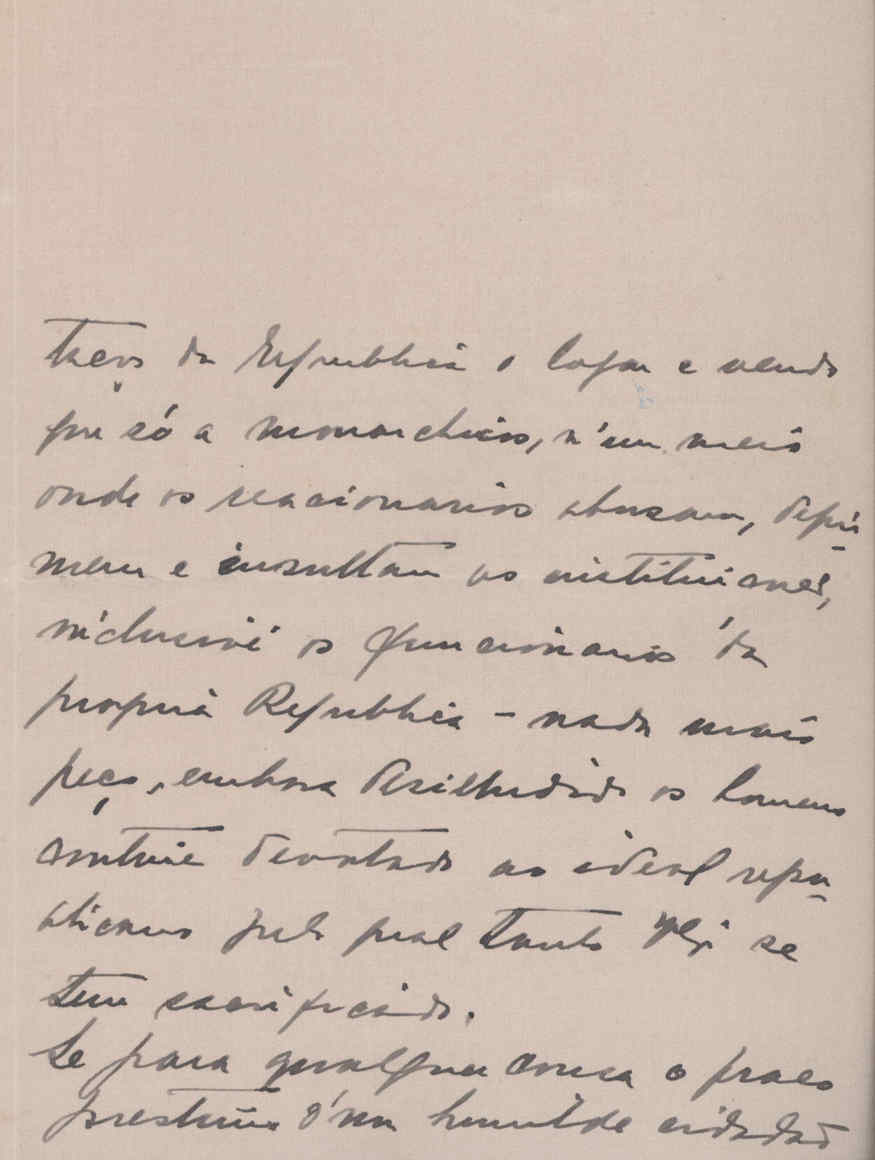 da Republica o logar e vendo
que só a monarchicos, n'um meio
onde os reacionarios abusam, depri-
mem e insultam as instituiçoes,
inclusivé os funcionarios da
propria Republica - nada mais
peço, embora desilludido os homens
continúe devotado ao ideal repu-
blicano pelo qual tanto se
tem sacrificado.
Se para qualquer cousa o fraco
prestimo d'um humilde cidadão